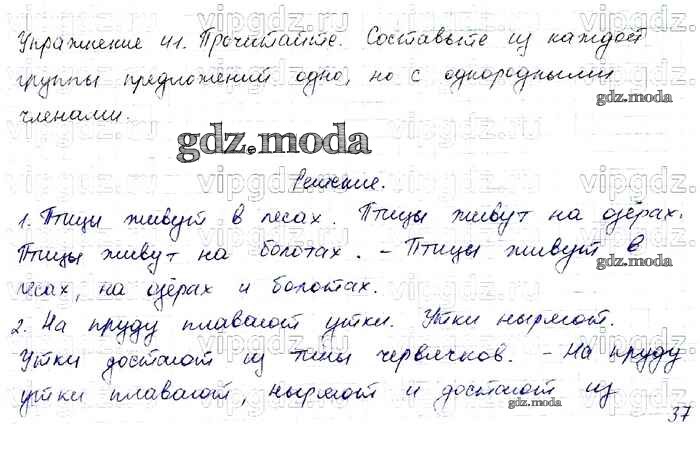 Упражнение 41. Прочитайте. Составьте из каждой
группы предложений одно, но с однородными
членами.
gdz.moda
gdz.moda
Решение.
1. Птицы живут в лесах. Птицы живут на озёрах.
Птицы живут на болотах. - Птицы живут в
лесах, на озёрах и болотах.
gdz.moda
2. На пруду плавают утки. Утки ныряют.
Утки достают из тины червячков. - На пруду
утки плавают, ныряют и достают из
gdz.moda
37